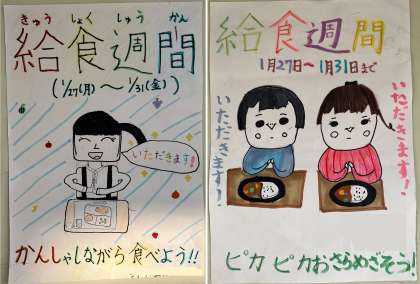 きゅう しょく しゅう かん
給食週間
(1/27(月)～1/31(金))
いただきます!
かんしゃしながら食べよう!!
給食週間
1月27日～1月31日まで
いただきます!
いただきます!
ピカピカおさらめざそう!